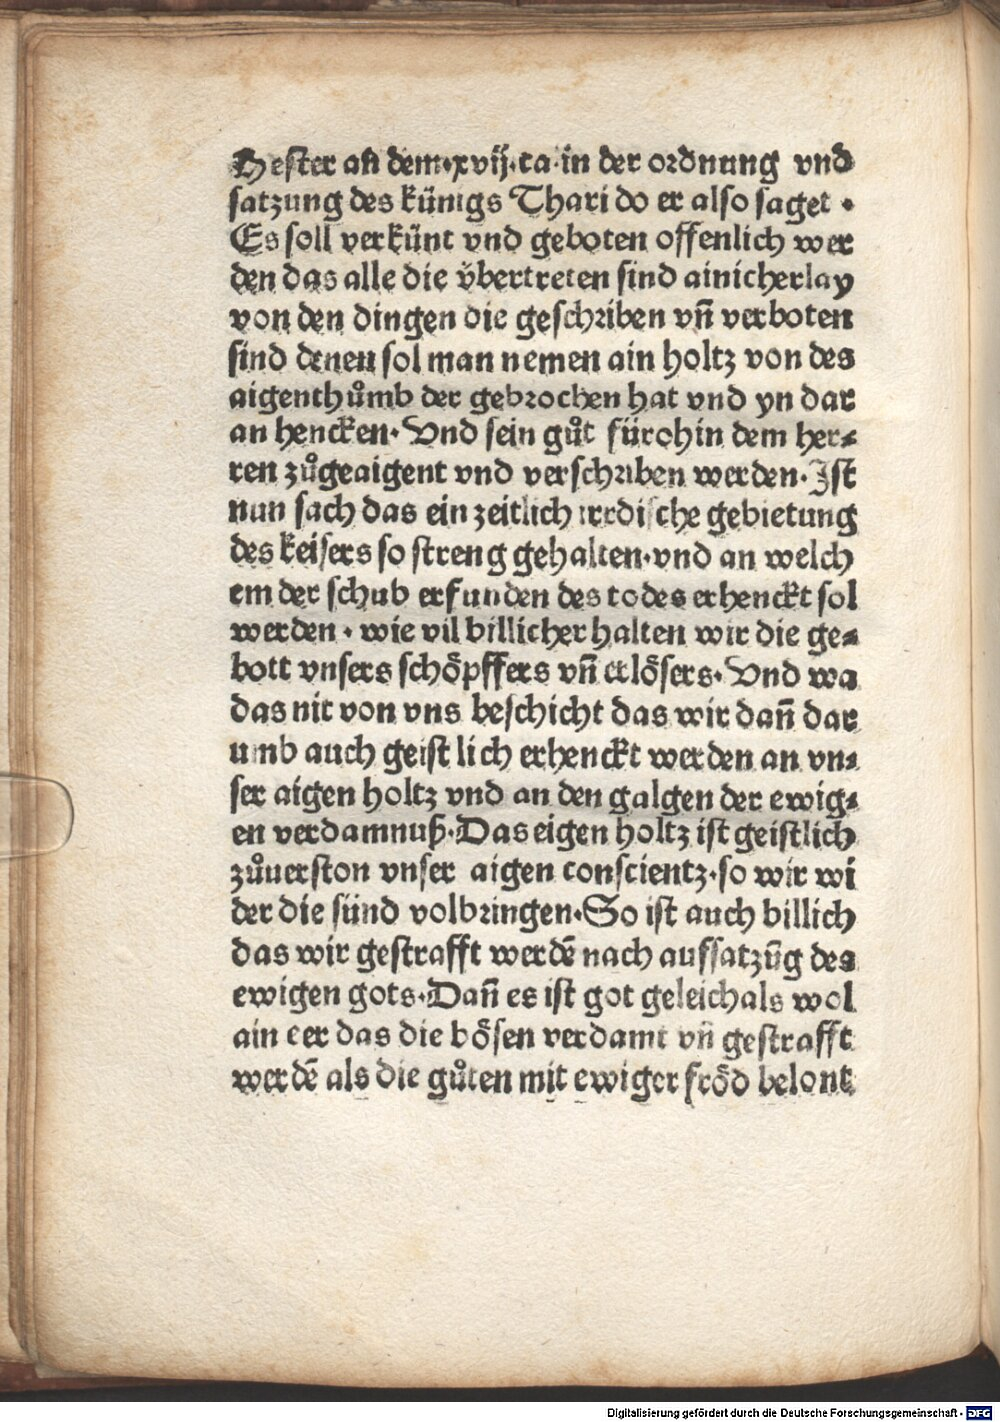 Hester an dem·xvij·ca·in der ordnung vnd
satzung des künigs Thari do er also saget ·
Es soll verkünt vnd geboten offenlich wer
den das alle die v̈bertreten sind ainicherlay
von den dingen die geschriben vn̄ verboten
sind denen sol man nemen ain holtz von des
aigenthůmb der gebrochen hat vnd yn dar
an hencken· Vnd sein gůt fürohin dem her⸗
ren zůgeaigent vnd verschriben werden· Ist
nun sach das ein zeitlich irrdische gebietung
des keisers so streng gehalten·vnd an welch
em der schub erfunden des todes erhenckt sol
werden · wie vil billicher halten wir die ge⸗
bott vnsers schöpffers vn̄ erlösers· Vnd wa
das nit von vns beschicht das wir dan̄ dar
umb auch geistlich erhenckt werden an vn⸗
ser aigen holtz vnd an den galgen der ewig⸗
en verdamnuß·Das eigen holtz ist geistlich
zůuerston vnser aigen conscientz·so wir wi
der die sünd volbringen·So ist auch billich
das wir gestrafft werdē nach aufsatzūg des
ewigen gots·Dan̄ es ist got geleich als wol
ain eer das die bösen verdamt vn̄ gestrafft
werdē als die gůten mit ewiger fröd belont
Digitalisierung gefördert durch die Deutsche Forschungsgemeinschaft - DFG